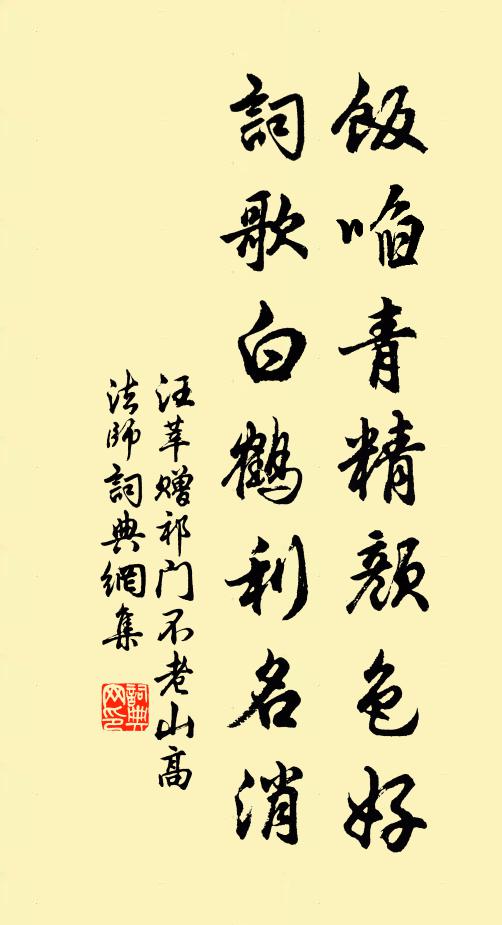 飯啗青精顏色好
詞歌白鶴利名消
汪莘贈祁门不老山高
法師詞典網集
詞典网印